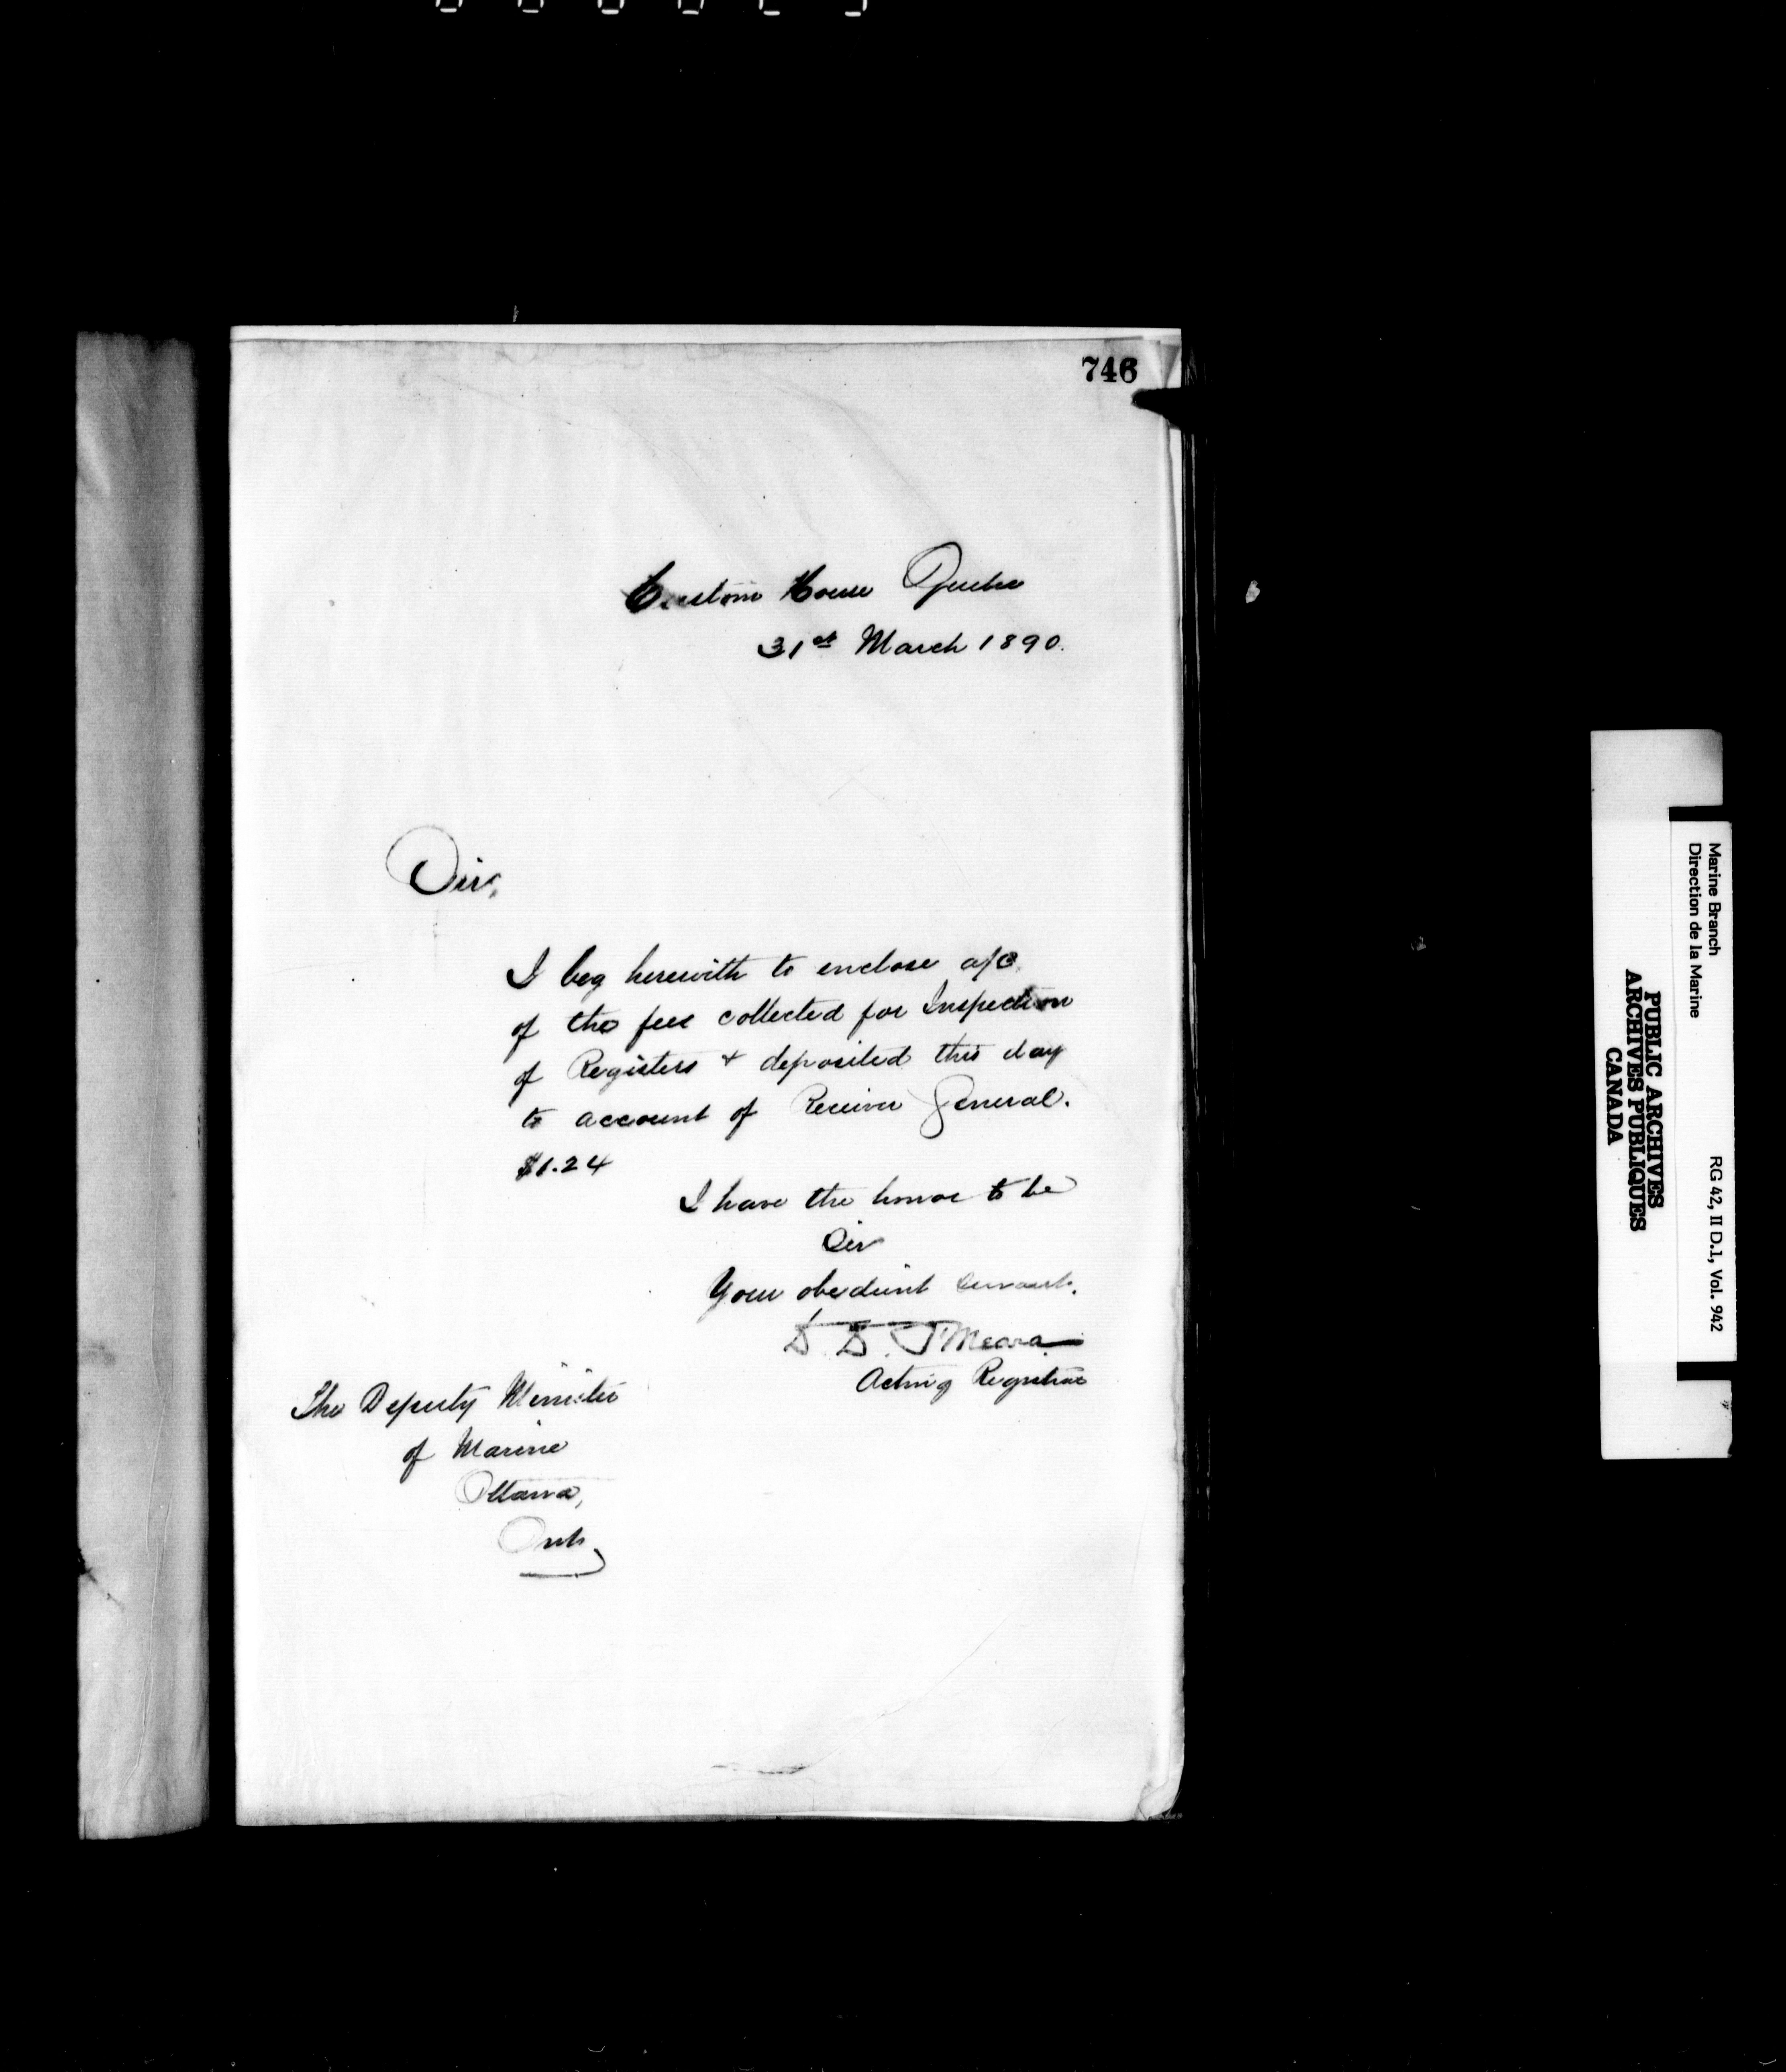 746
Custom House Quebec
31st March 1890.
Sir,
I beg herewith to enclose a/c
of the fees collected for Inspection
of Registers & deposited this day
to account of Receiver General.
$1.24
I have the honor to be
Sir
Your obedient servant.
D. D. O'Meara
Acting Registrar
The Deputy Minister
of Marine
Ottawa,
Ont.
Marine Branch
Direction de la Marine
RG 42, II D.1, Vol. 942
PUBLIC ARCHIVES
ARCHIVES PUBLIQUES
CANADA